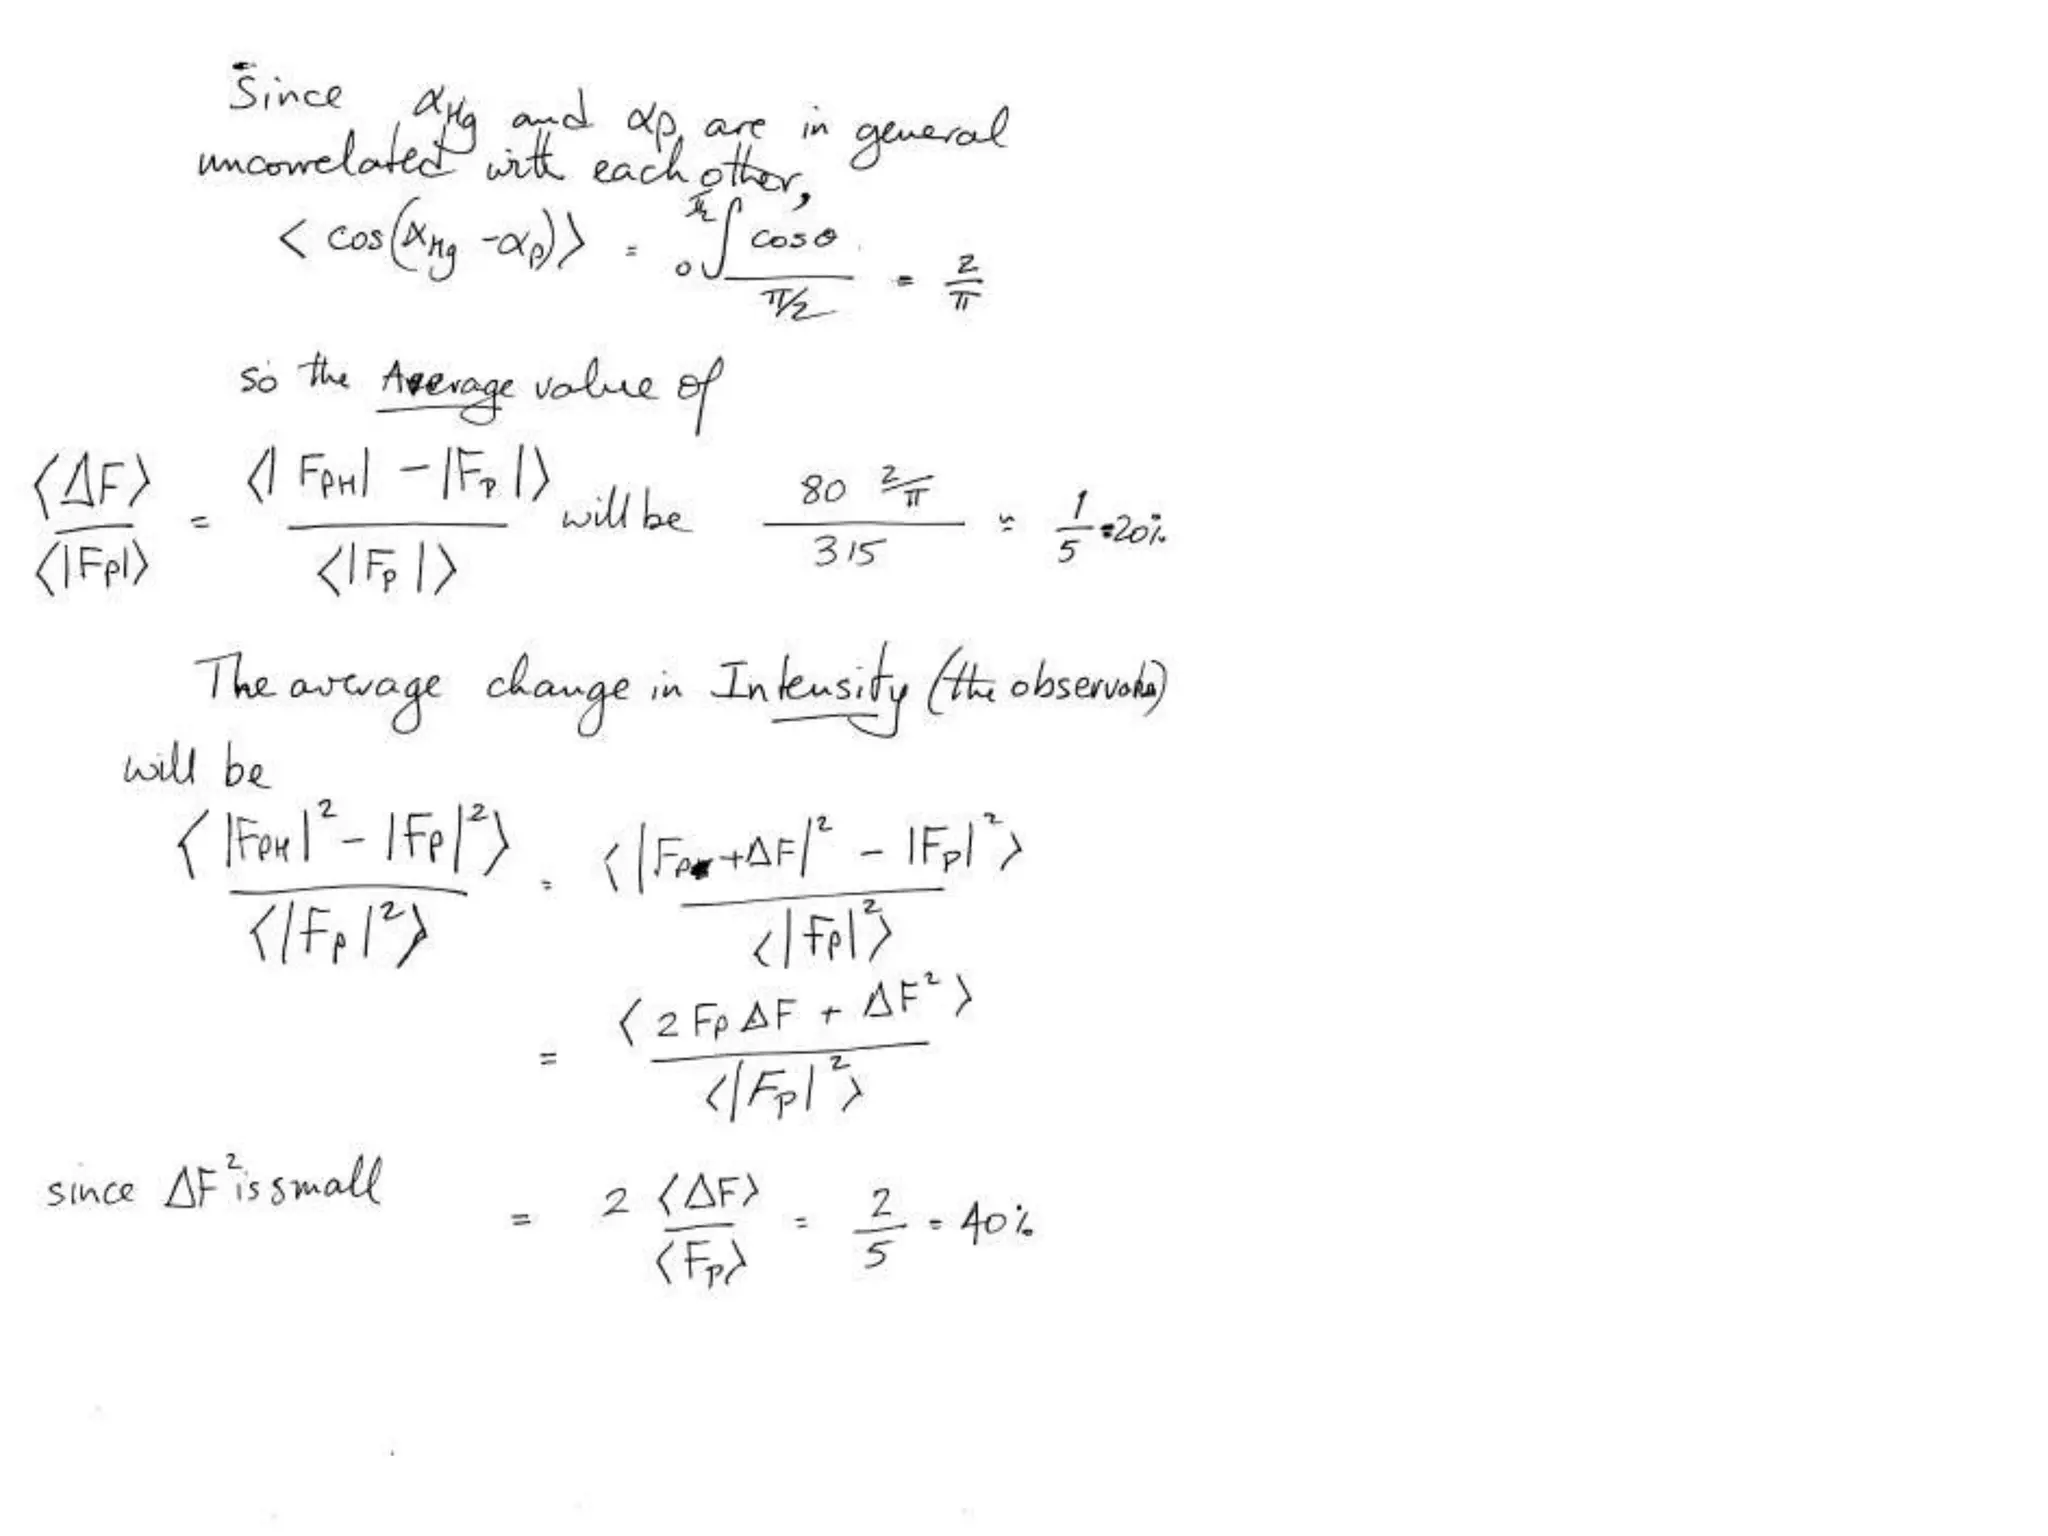 Since α_Hg and α_P are in general
uncorrelated with each other,
< cos(α_Hg - α_P)> = 0∫^π/2 cosθ / π/2 = 2/π
so the Average value of
<ΔF> / <|F_P|> = <|F_PH| - |F_P|> / <|F_P|> will be 80 2/π / 315 ≈ 1/5 = 20%
The average change in Intensity (the observable)
will be
< |F_PH|² - |F_P|² > / <|F_P|²> = < |F_P + ΔF|² - |F_P|² > / <|F_P|²>
= < 2 F_P ΔF + ΔF² > / <|F_P|²>
since ΔF² is small = 2 <ΔF> / <F_P> = 2/5 = 40%